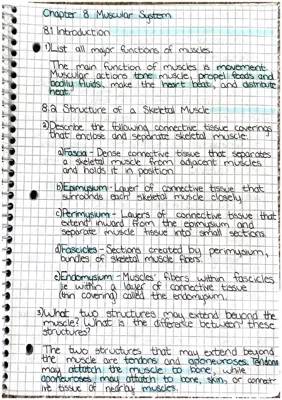 Chapter 8 Muscular System
8.1 Introduction
1) List all major functions of muscles.
The main function of muscles is movement.
Muscular actions tone muscle, propel foods and
bodily fluids, make the heart beat, and distribute
heat.
8.2 Structure of a Skeletal Muscle
2) Describe the following connective tissue coverings
that enclose and separate skeletal muscle.
a) Fascia - Dense connective tissue that separates
a skeletal muscle from adjacent muscles
and holds it in position
b) Epimysium - Layer of connective tissue that
surrounds each skeletal muscle closely
c) Perimysium - Layers of connective tissue that
extend inward from the epimysium and
separate muscle tissue into small sections
d) Fascicles - Sections created by perimysium,
bundles of skeletal muscle fibers.
e) Endomysium - Muscles' fibers within fascicles
lie within a layer of connective tissue
(thin covering) called the endomysium.
3) What two structures may extend beyond the
muscle? What is the difference between these
structures?
The two structures that may extend beyond
the muscle are tendons and aponeuroses. Tendons
may attach the muscle to bone, while
aponeuroses may attach to bone, skin, or connect-
ive tissue of nearby muscles.